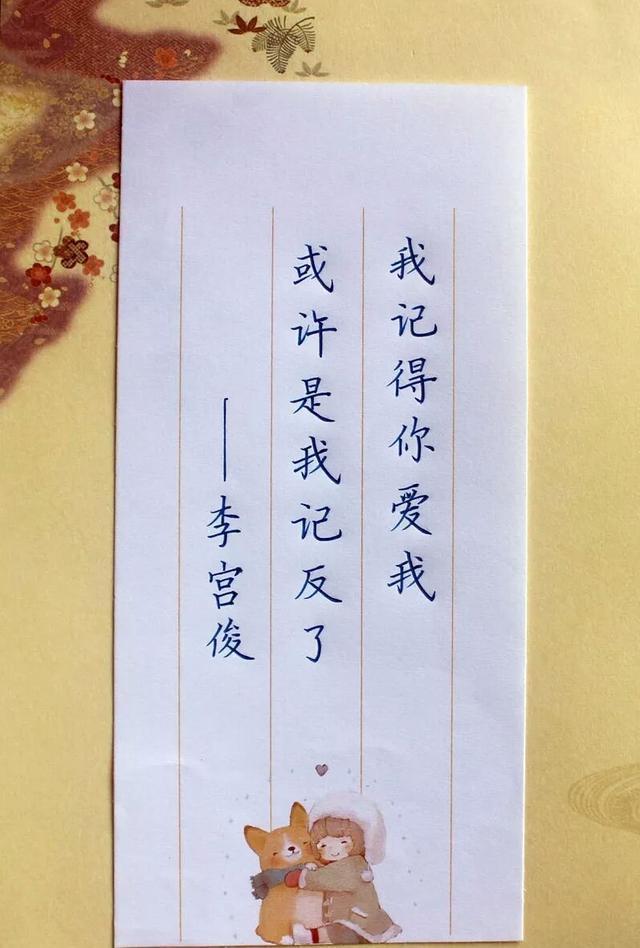 我记得你爱我
或许是我记反了
——李宫俊